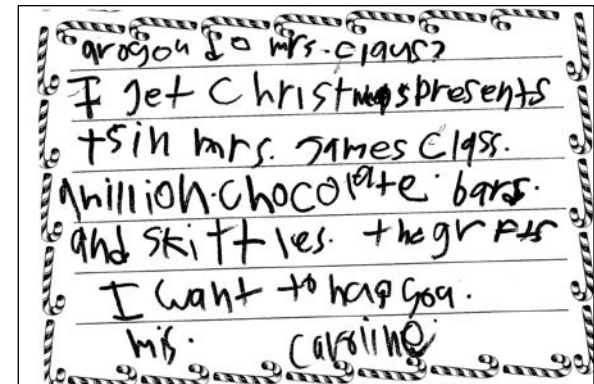 arogou so mrs. claus?
I get Christmas presents
tsin mrs. James Class.
amillion chocolate bars.
and skittles. the grfts
I want to hag you.
mis. Caroline